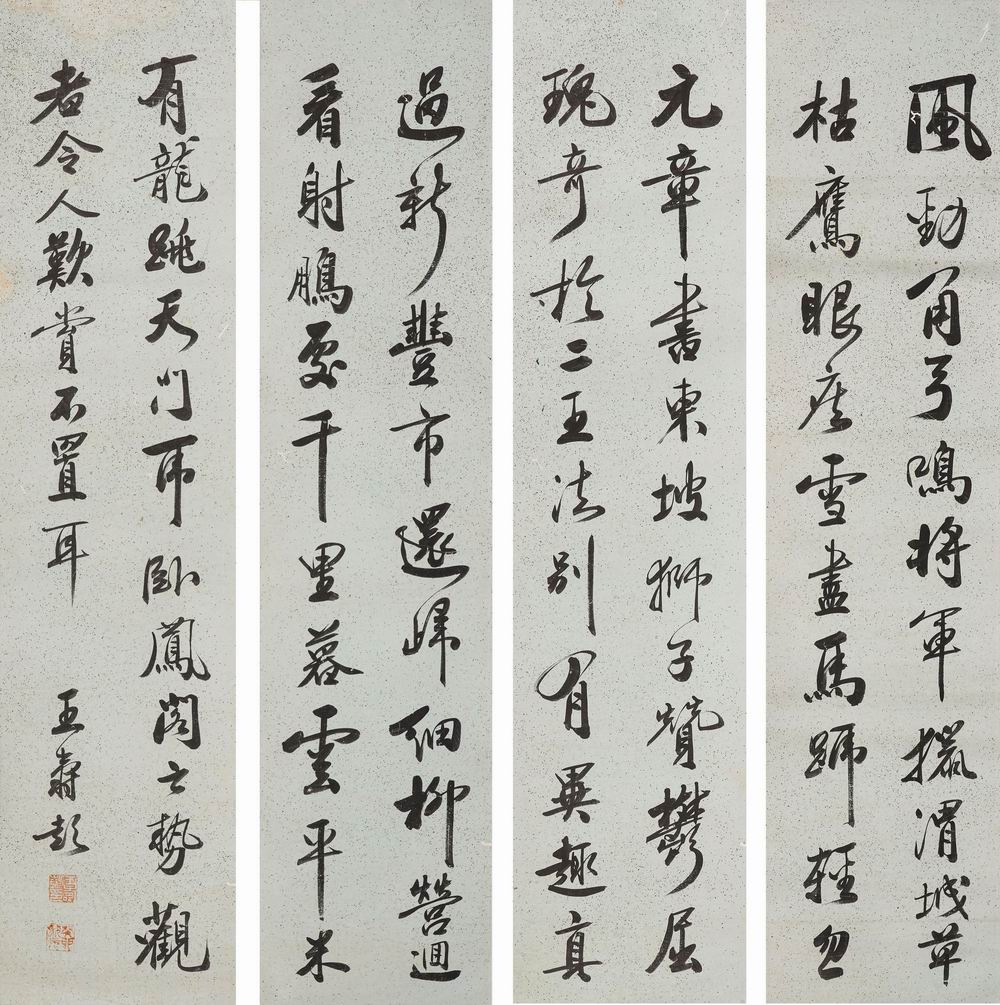 風勁角弓鳴將軍獵渭城草
枯鷹眼疾雪盡馬蹄輕忽
過新豐市還歸細柳營迴
看射鵰處千里暮雲平米
元章書東坡獅子贊鬱屈
瑰奇於二王法別有異趣真
有龍跳天門虎臥鳳閣之勢觀
者令人歎賞不置耳
王壽彭